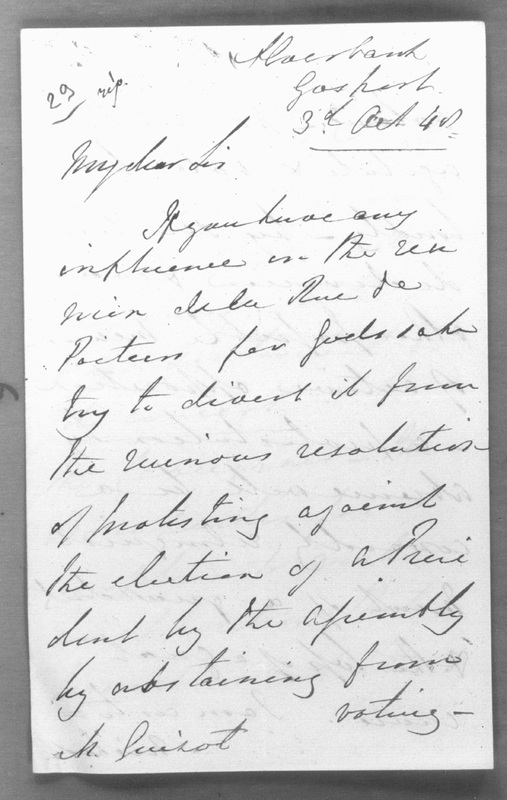 29 rép.
Alverbank
Gosport.
3d Oct 48.
My dear Sir
If you have any
influence in the reu
nion de la Rue de
Poitiers for Gods sake
try to divert it from
the ruinous resolution
of protesting against
the election of a Presi
dent by the Assembly
by abstaining from
voting -
M. Guizot